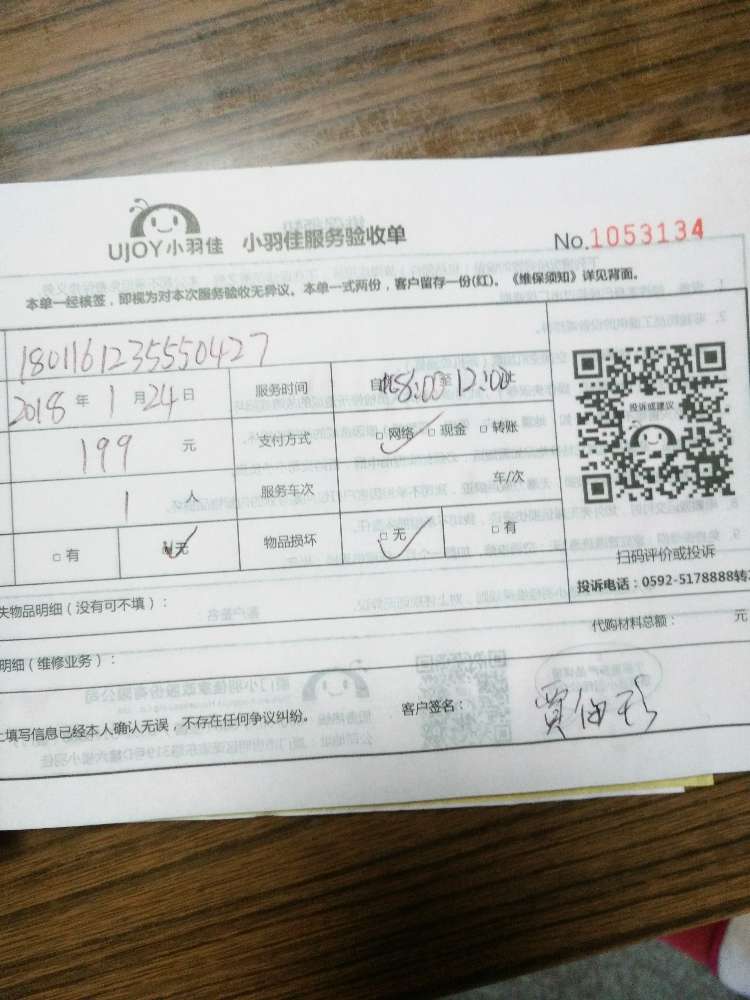 UJOY小羽佳 小羽佳服务验收单 No.1053134
本单一经核签，即视为对本次服务验收无异议。本单一式两份，客户留存一份(红)。《维保须知》详见背面。
1801161235550427
2018 年 1 月 24 日 服务时间 自 8:00 至 12:00 止
199 元 支付方式 □ 网络 □ 现金 □ 转账
1 人 服务车次 车/次
□ 有 □ 无 物品损坏 □ 无 □ 有
投诉或建议
扫码评价或投诉
投诉电话：0592-5178888转
失物品明细（没有可不填）：
代购材料总额： 元
明细（维修业务）：
上填写信息已经本人确认无误，不存在任何争议纠纷。 客户签名：贾